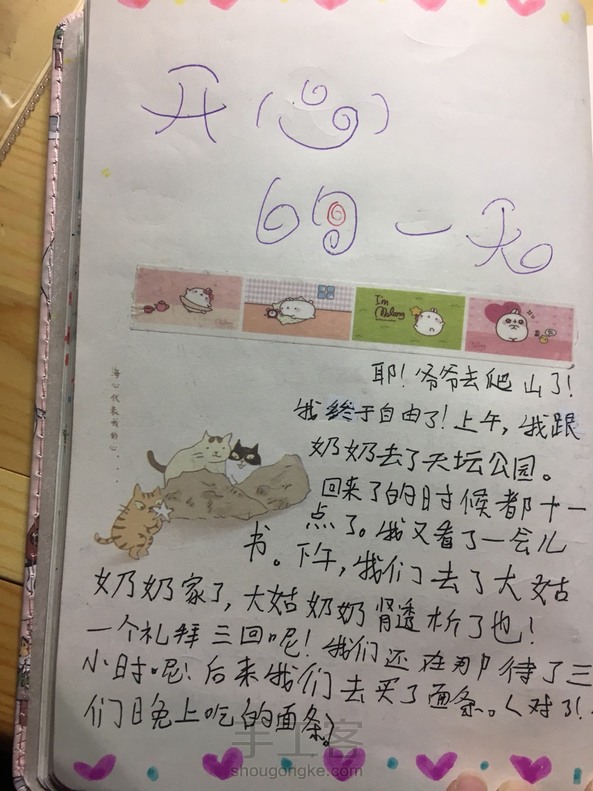 开心
的一天
I'm
Molang
海心代表我的心...
耶！爷爷去爬山了！
我终于自由了！上午，我跟
奶奶去了天坛公园。
回来了的时候都十一
点了。我又看了一会儿
书。下午，我们去了大姑
奶奶家了，大姑奶奶肾透析了也！
一个礼拜三回呢！我们还在那待了三
小时呢！后来我们去买了面条。（对了！
们晚上吃的面条）
手工客
shougongke.com